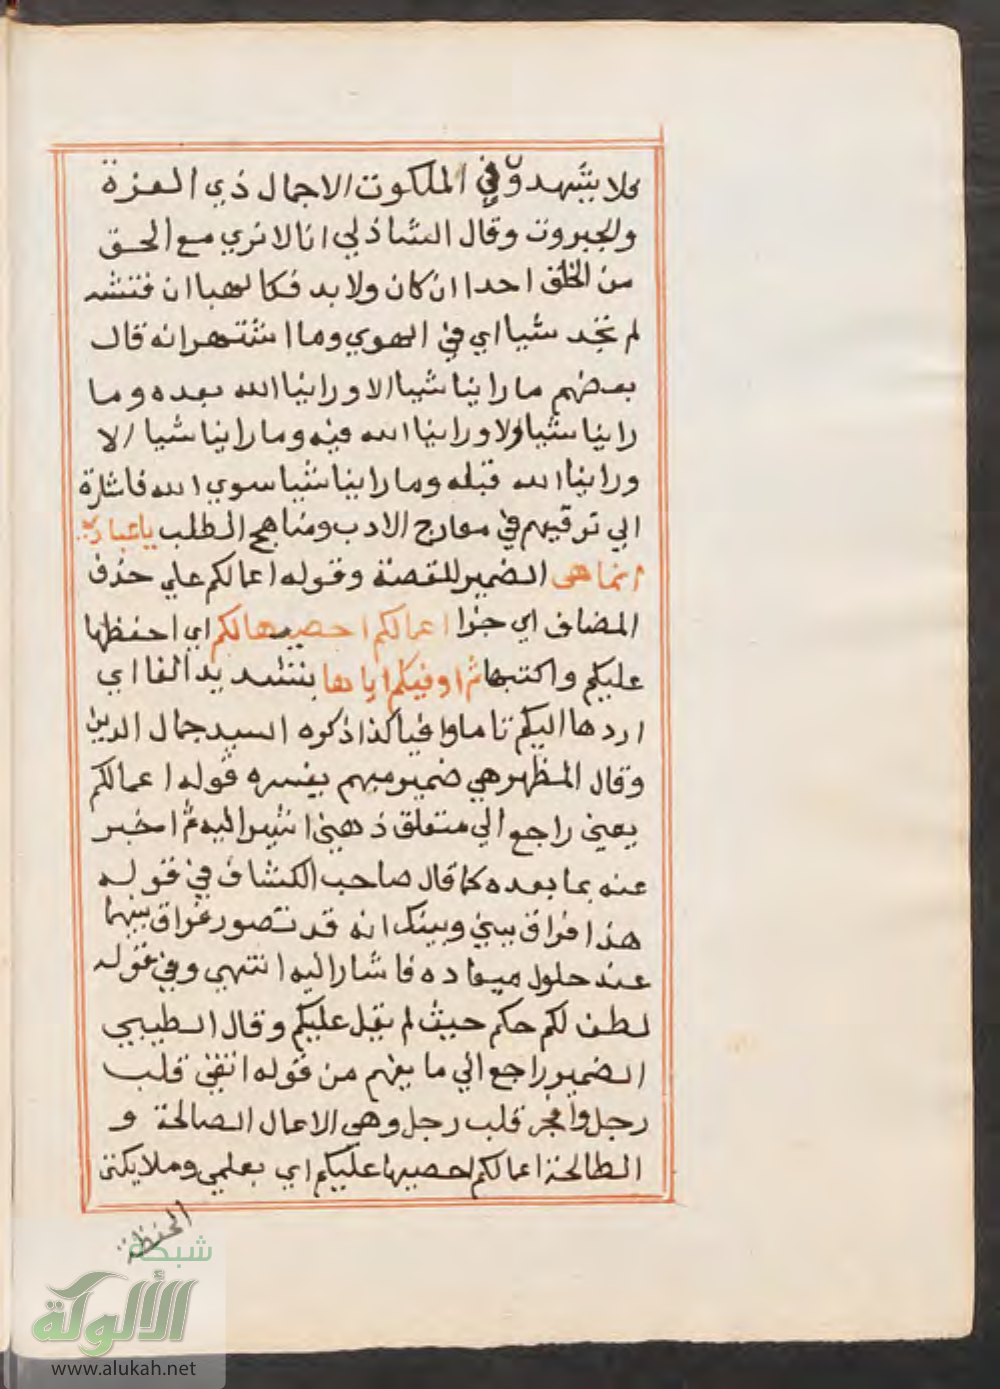 فلا يشهدون في الملكوت الا جمال ذي العزة
والجبروت وقال الشاذلي انا لا نري مع الحق
من الخلق احدا ان كان ولا بد فكالهبا ان فتشه
لم تجد شيا اي في الهوي وما اشتهر انه قال
بعضهم ما راينا شيا الا وراينا الله بعده وما
راينا شيا الا وراينا الله فيه وما راينا شيا الا
وراينا الله قبله وما راينا شيا سوي الله فاشارة
الي ترقيهم في معارج الادب ومناهج الطلب يا عبادي
انما هي الضمير للقصة وقوله اعمالكم علي حذف
المضاف اي جزا اعمالكم احصيها لكم اي احفظها
عليكم واكتبها ثم اوفيكم اياها بتشديد الفا اي
اردها اليكم تاما وافيا كذا ذكره السيد جمال الدين
وقال المظهر هي ضمير مبهم يفسره قوله اعمالكم
يعني راجع الي متعلق ذهني اشير اليه ثم اخبر
عنه بما بعده كما قال صاحب الكشاف في قوله
هذا فراق بيني وبينك انه قد تصور فراق بينهما
عند حلول ميعاده فاشار اليه انتهي وفي قوله
لطف لكم حكم حيث لم يقل عليكم وقال الطيبي
الضمير راجع الي ما يفهم من قوله اتقي قلب
رجل وافجر قلب رجل وهي الاعمال الصالحة و
الطالحة اعمالكم احصيها عليكم اي بعلمي وملايكتي
الحفظة
شبكة
الألوكة
www.alukah.net